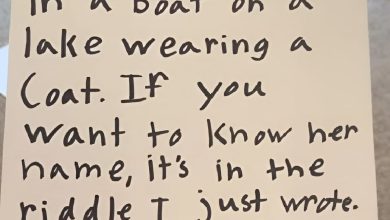 in a boat on a
lake wearing a
Coat. If you
want to know her
name, it's in the
riddle I just wrote.